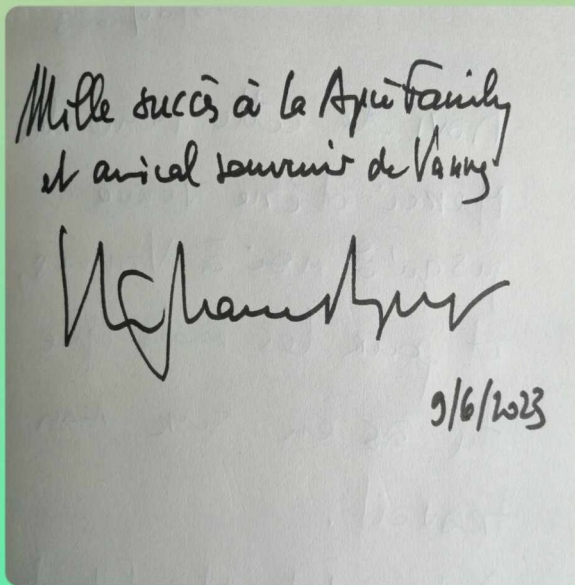 Mille succès à la Apié Family
et amical souvenir de Vanny
9/6/2023